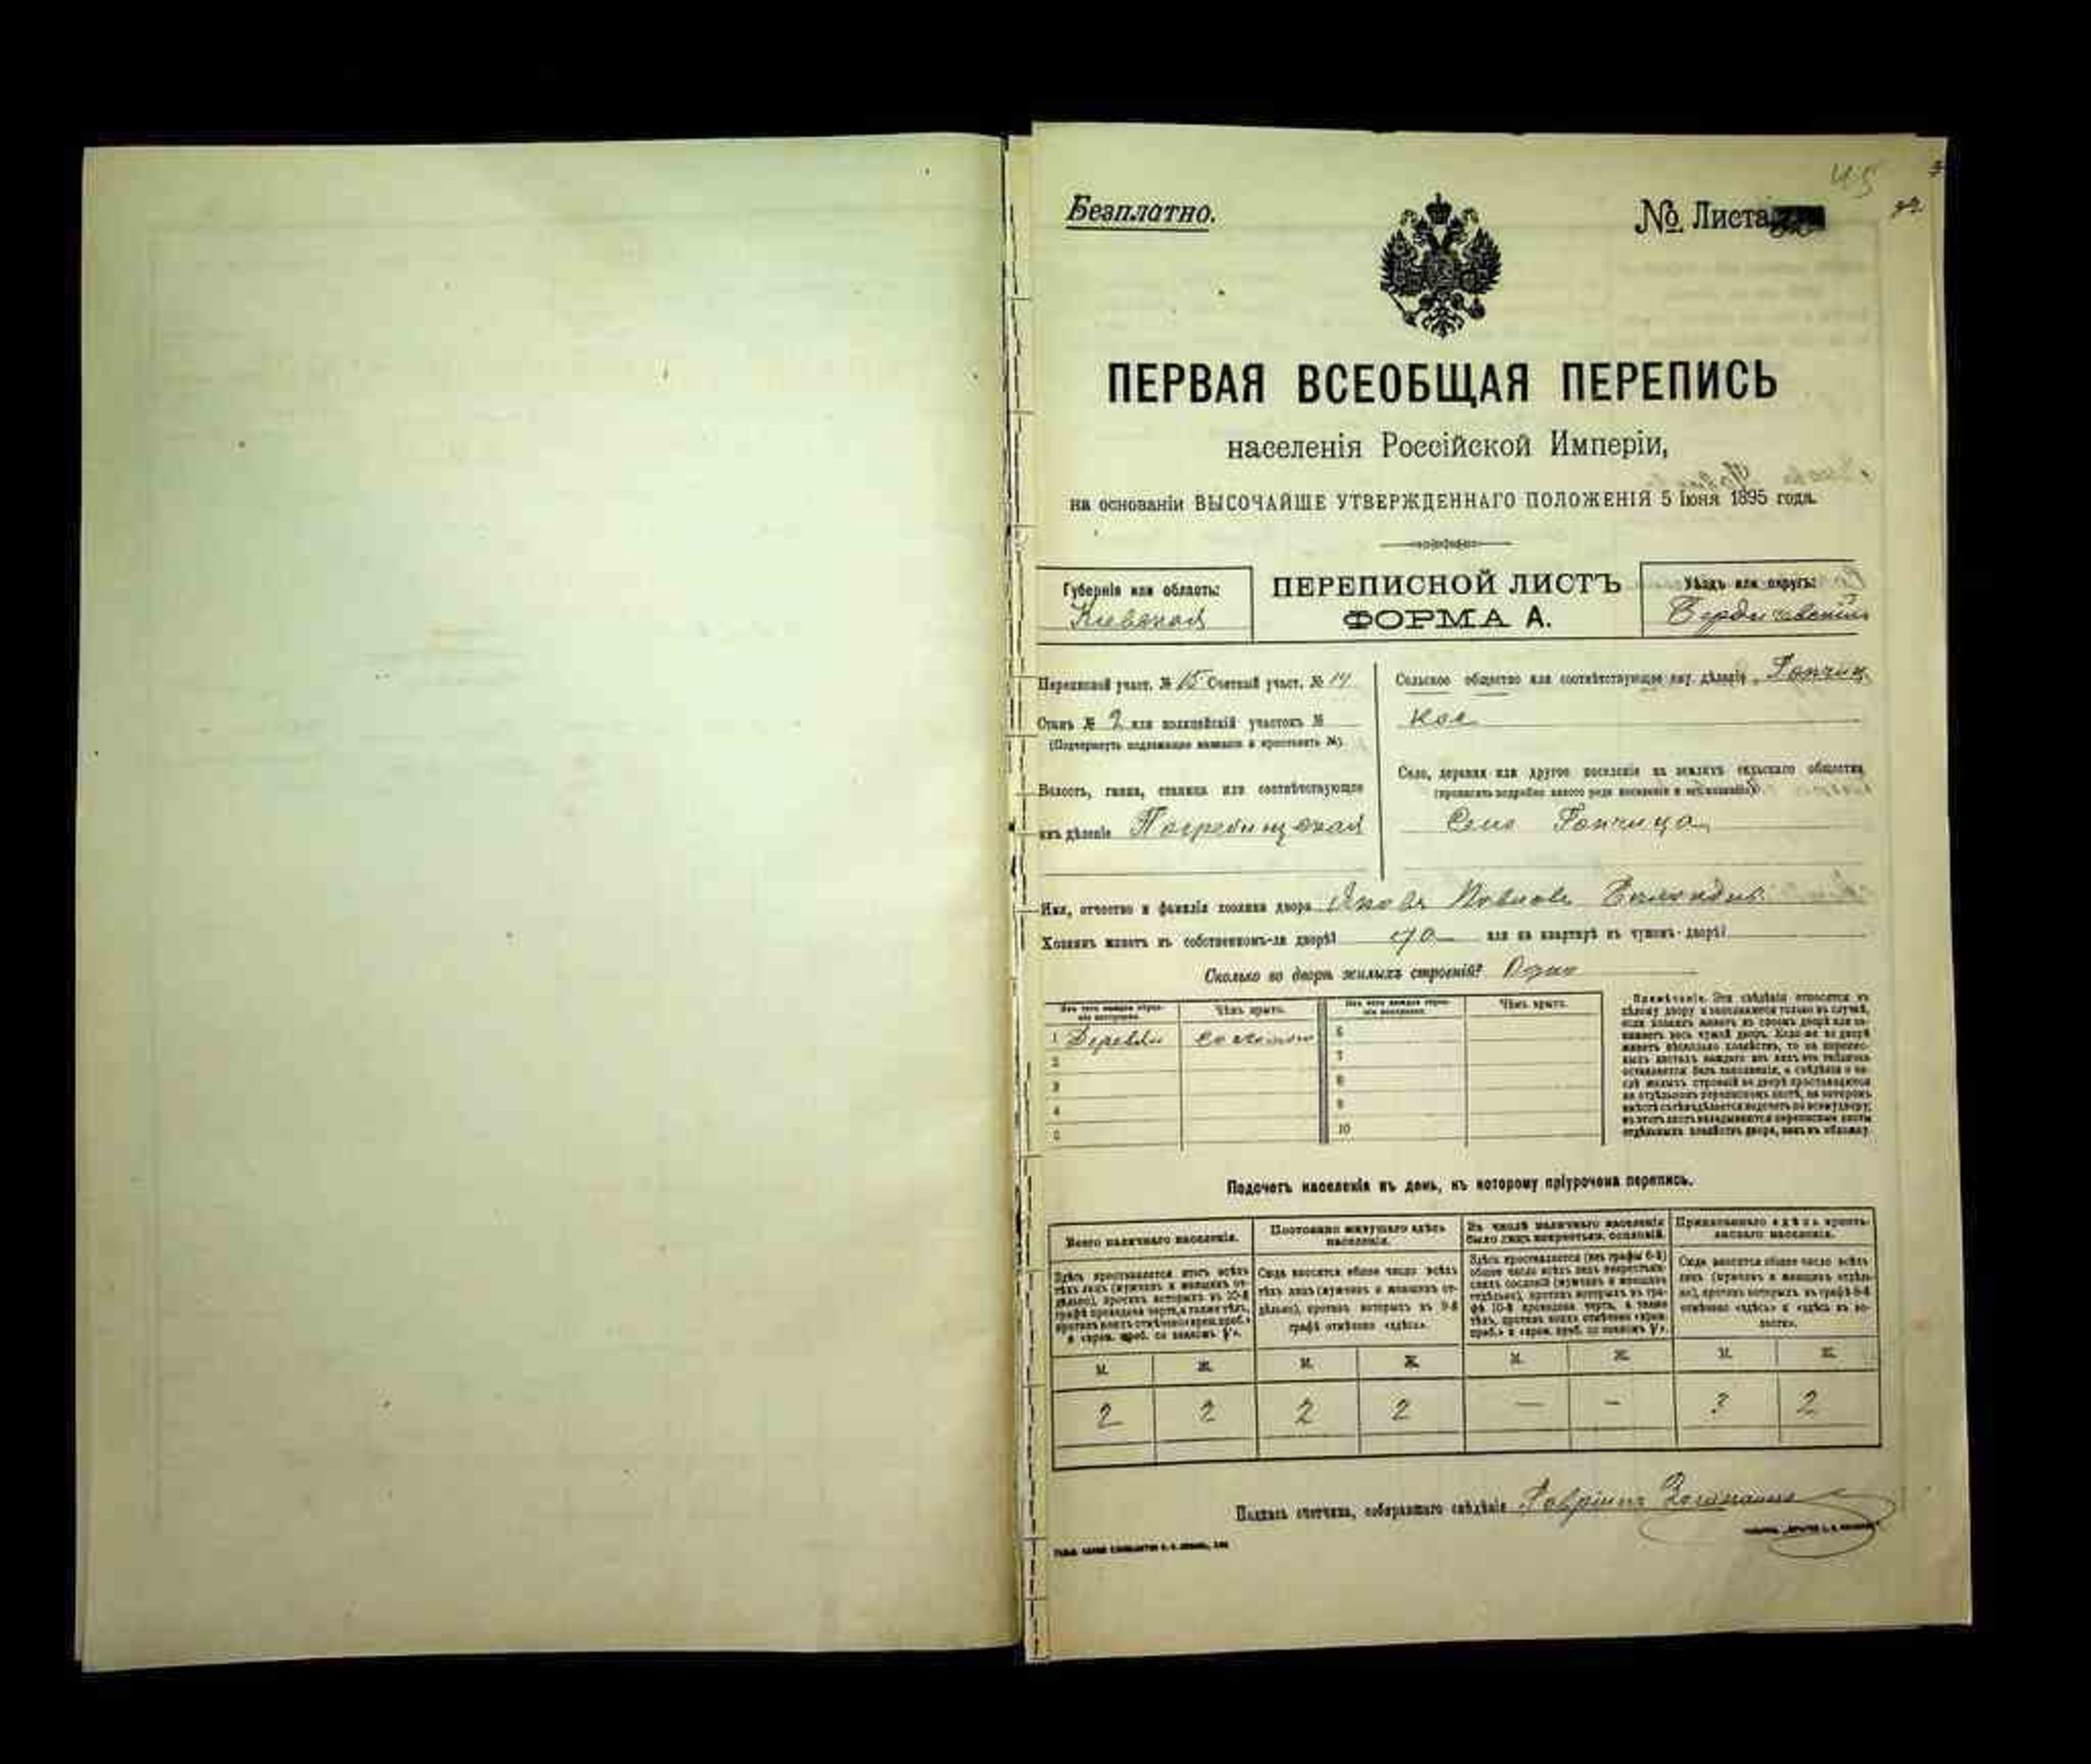 45
Безплатно.
№ Листа
ПЕРВАЯ ВСЕОБЩАЯ ПЕРЕПИСЬ
населенія Россійской Имперіи,
на основаніи ВЫСОЧАЙШЕ УТВЕРЖДЕННАГО ПОЛОЖЕНІЯ 5 Іюня 1895 года.
Губернія или область:
Кіевская
ПЕРЕПИСНОЙ ЛИСТЪ
ФОРМА А.
Уѣздъ или округъ:
Бердичевскій
Переписной участ. № 15 Счетный участ. № 14
Станъ № 2 или полицейскій участокъ №
(Подчеркнуть подлежащее названіе и проставить №).
Волость, гмина, станица или соотвѣтствующее
имъ дѣленіе Погребищская
Сельское общество или соотвѣтствующее ему дѣленіе Гопчиц
кое
Село, деревня или другое поселеніе на земляхъ сельскаго общества
(прописать подробно какого рода поселеніе и его названіе).
Село Гопчица
Имя, отчество и фамилія хозяина двора Яковъ Павловъ
Хозяинъ живетъ въ собственномъ-ли дворѣ? да или на квартирѣ въ чужомъ дворѣ?
Сколько во дворѣ жилыхъ строеній? Одно
Изъ чего каждое строе-
ніе построено.
Чѣмъ крыто.
Изъ чего каждое строе-
ніе построено.
Чѣмъ крыто.
1 Деревян соломою 6
2 7
3 8
4 9
5 10
Примѣчаніе. Эти свѣдѣнія относятся къ
цѣлому двору и заполняются только въ случаѣ,
если хозяинъ живетъ въ своемъ дворѣ или за-
нимаетъ весь чужой дворъ. Если же во дворѣ
живетъ нѣсколько хозяйствъ, то на перепис-
ныхъ листахъ каждаго изъ нихъ эта табличка
оставляется безъ заполненія, а свѣдѣнія о чи-
слѣ жилыхъ строеній во дворѣ проставляются
на отдѣльномъ переписномъ листѣ, на которомъ
вмѣстѣ съ тѣмъ дѣлается подсчетъ по всему двору;
въ этотъ листъ вкладываются переписные листы
отдѣльныхъ хозяйствъ двора, какъ въ обложку.
Подсчетъ населенія въ день, къ которому пріурочена перепись.
Всего наличнаго населенія.
Постоянно живущаго здѣсь
населенія.
Въ числѣ наличнаго населенія
было лицъ некрестьян. сословій.
Приписаннаго здѣсь кресть-
янскаго населенія.
Здѣсь проставляется итогъ всѣхъ
тѣхъ лицъ (мужчинъ и женщинъ от-
дѣльно), противъ которыхъ въ 10-й
графѣ проведена черта, а также тѣхъ,
противъ коихъ отмѣчено «врем. преб.»
и «врем. преб. со знакомъ V».
Сюда вносится общее число всѣхъ
тѣхъ лицъ (мужчинъ и женщинъ от-
дѣльно), противъ которыхъ въ 9-й
графѣ отмѣчено «здѣсь».
Здѣсь проставляется (изъ графы 6-й)
общее число всѣхъ лицъ некрестьян-
скихъ сословій (мужчинъ и женщинъ
отдѣльно), противъ которыхъ въ гра-
фѣ 10-й проведена черта, а также
тѣхъ, противъ коихъ отмѣчено «врем.
преб.» и «врем. преб. со знакомъ V».
Сюда вносится общее число всѣхъ
лицъ (мужчинъ и женщинъ отдѣль-
но), противъ которыхъ въ графѣ 8-й
отмѣчено «здѣсь» и «здѣсь въ во-
лости».
М. Ж. М. Ж. М. Ж. М. Ж.
2 2 2 2 — — 2 2
Подпись счетчика, собиравшаго свѣдѣнія Гавріилъ